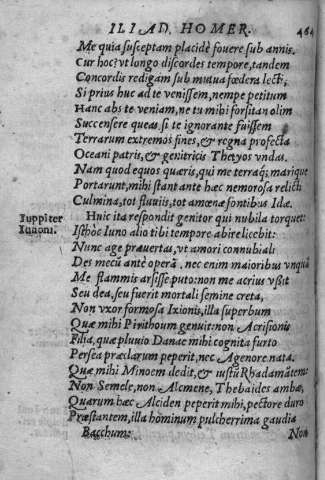 ILIAD. HOMER. 464
Me quia susceptam placidè fovere sub annis.
Cur hoc? vt longo discordes tempore, tandem
Concordis redigam sub mutua fœdera lecti,
Si prius huc ad te venissem, nempe petitum
Hanc abs te veniam, ne tu mihi forsitan olim
Succensere queas si te ignorante fuissem
Terrarum extremos fines, & regna profecta
Oceani patris, & genitricis Thetyos vndas.
Nam quod equos quæris, qui me terraq; marique
Portarunt, mihi stant ante hæc nemorosa relicti
Culmina, tot fluuiis, tot amœnæ fontibus Idæ.
Iuppiter Iunoni.
Huic ita respondit genitor qui nubila torquet:
Isthôc Iuno alio tibi tempore abire licebit:
Nunc age præuertas, vt amori connubiali
Des mecũ ante operã, nec enim maioribus vnquã
Me flammis arsisse puto: non me acrius vssit
Seu dea, seu fuerit mortali semine creta,
Non vxor formosa Ixionis, illa superbum
Quæ mihi Pirithoum genuit: non Acrisionis
Filia, quæ pluuio Danae mihi cognita furto
Persea præclarum peperit, nec Agenore nata.
Quæ mihi Minoem dedit, & iustũ Rhadamãtem:
Non Semele, non Alcmene, Thebaides ambæ,
Quarum hæc Alciden peperit mihi, pectore duro
Præstantem, illa hominum pulcherrima gaudia
Bacchum: Non